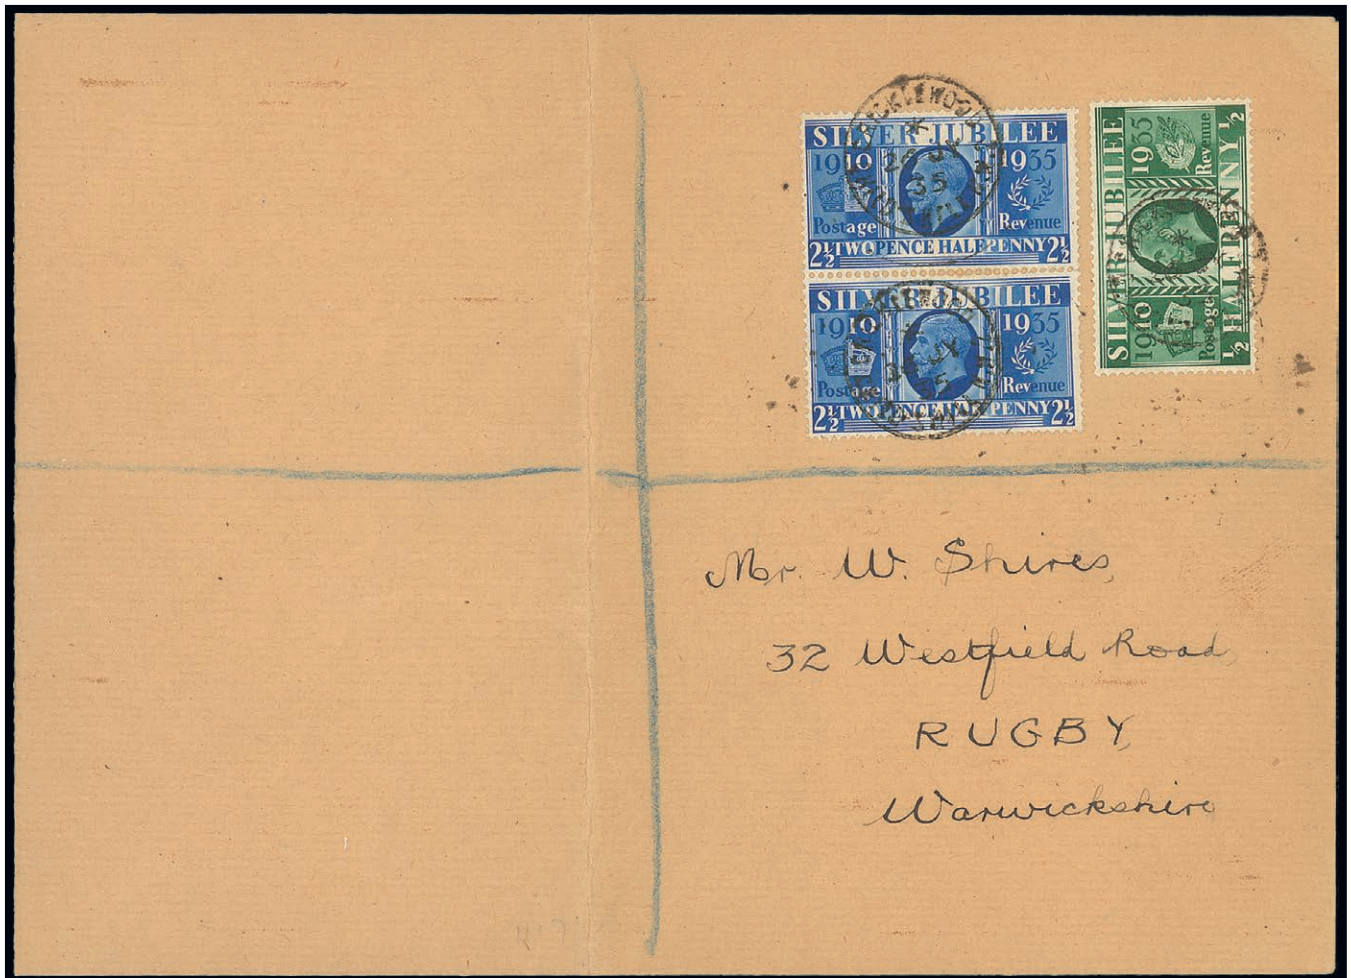 SILVER JUBILEE
1910 1935
Postage Revenue
2½ TWOPENCE HALFPENNY 2½
CRICKLEWOOD
JY
35
SILVER JUBILEE
1910 1935
Postage Revenue
2½ TWOPENCE HALFPENNY 2½
JY
35
SILVER JUBILEE
1910 1935
Postage Revenue
½ HALFPENNY ½
Mr. W. Shires,
32 Westfield Road,
RUGBY,
Warwickshire